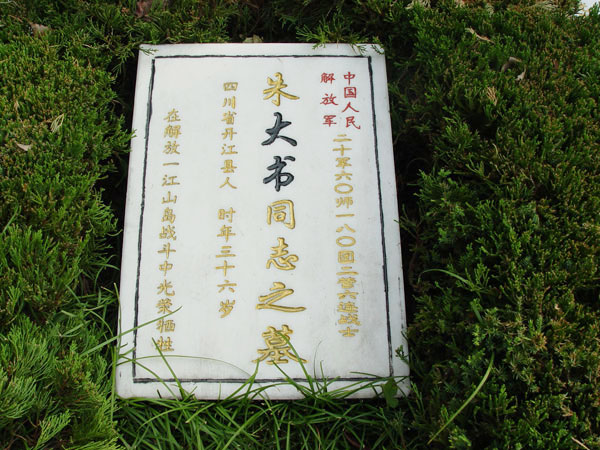 中国人民
解放军
二十军六〇师一八〇团二营六连战士
朱大书同志之墓
四川省丹江县人 时年三十六岁
在解放一江山岛战斗中光荣牺牲